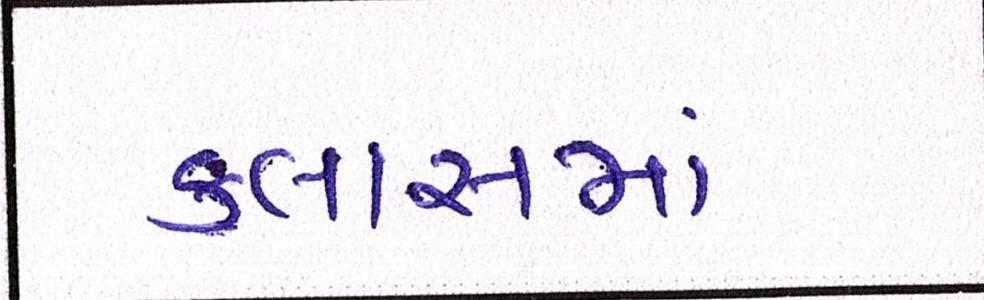 ક્લાસમાં